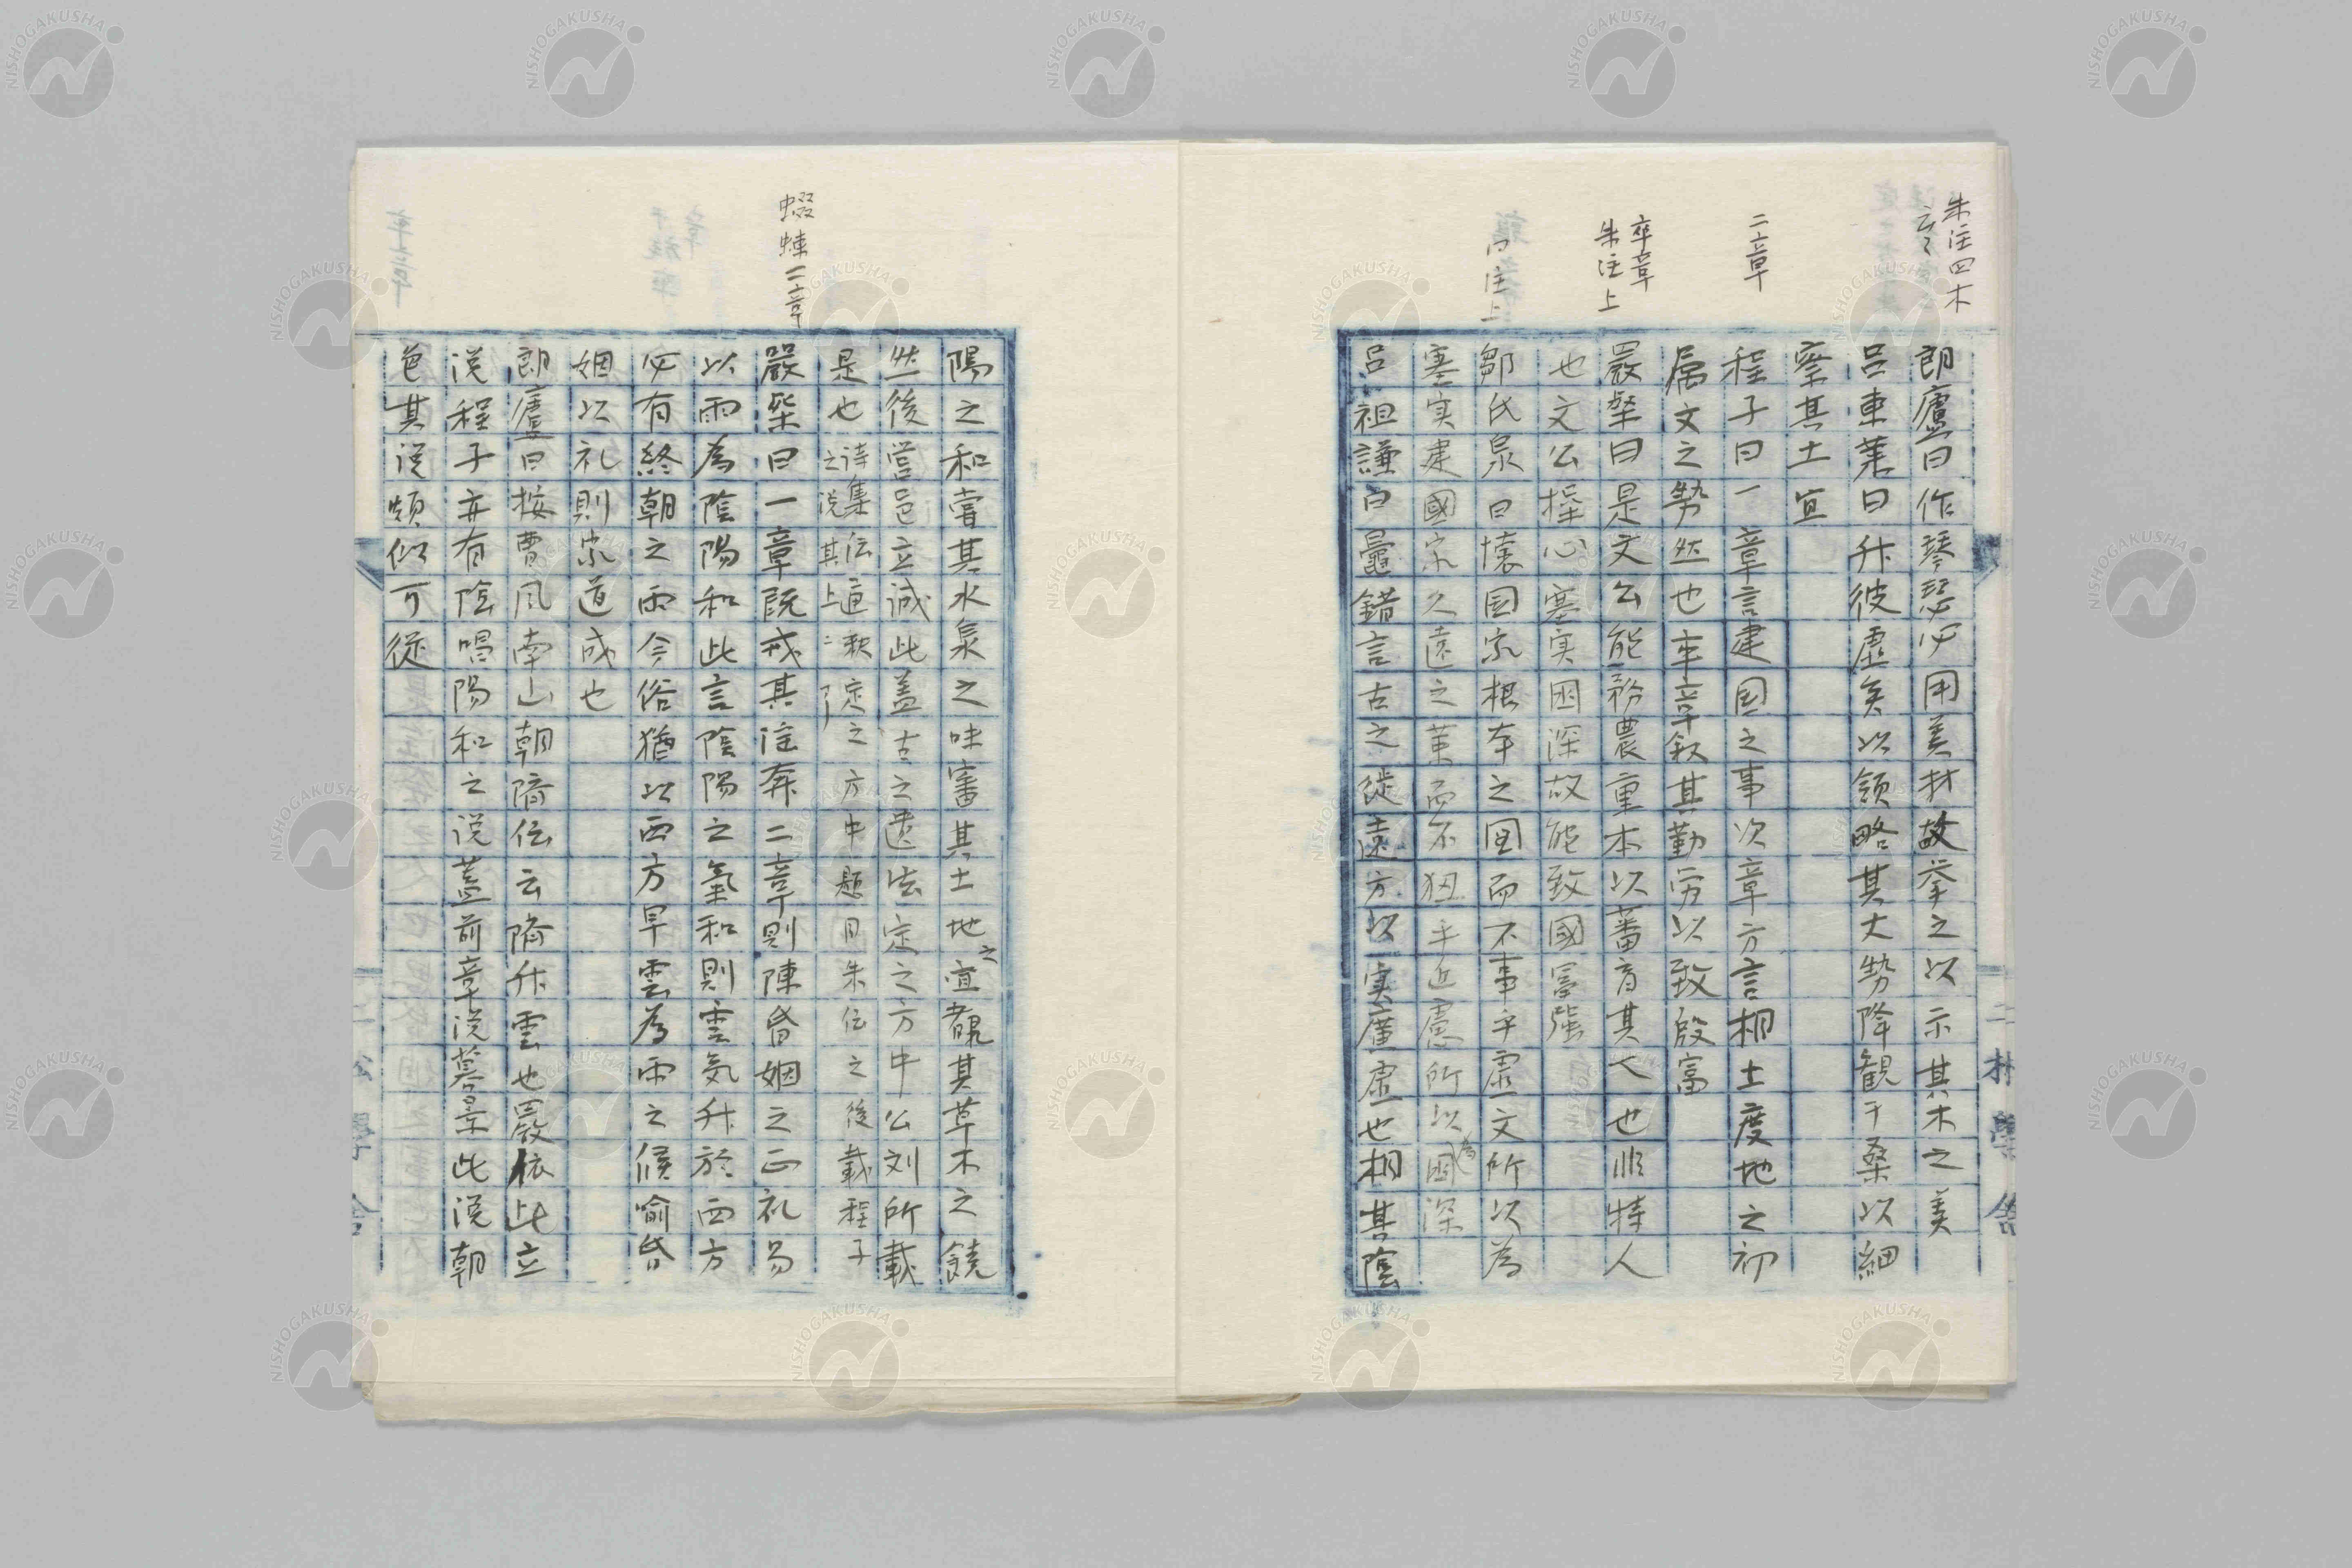 朱注四木
云〻
朗廬曰作琴瑟必用美材故挙之以示其木之美
呂東莱曰升彼虚矣以領略其大勢降観于桑以細
察其土宜
二章
程子曰一章言建国之事次章方言相土度地之初
属文之勢然也卒章叙其勤労以致殷富
卒章
朱注上
嚴粲曰是文公能務農重本以蕃育其人也非特人
也文公操心塞実困深故能致國冨強
同注上
鄒氏泉曰懐国家根本之図而不事乎虚文所以為
塞実建國家久遠之業而不狃乎近慮所以為困深
呂祖謙曰鼂錯言古之徙遠方以実廣虚也相其陰
陽之和嘗其水泉之味審其土地之宜観其草木之饒
然後営邑立城此盖古之遺法定之方中公刘所載
是也 詩集伝通釈定之方中題目朱伝之後載程子
之説其上二
蝃蝀二章
嚴粲曰一章既戒其淫奔二章則陳昏姻之正礼易
以雨為陰陽和此言陰陽之氣和則雲気升於西方
必有終朝之雨今俗猶以西方早雲為雨之候喩昏
姻以礼則家道成也
朗廬曰按曹風南山朝隮伝云隮升雲也嚴依此立
説程子亦有陰唱陽和之说蓋前章说暮景此说朝
色其说頗似可從
二松學舎